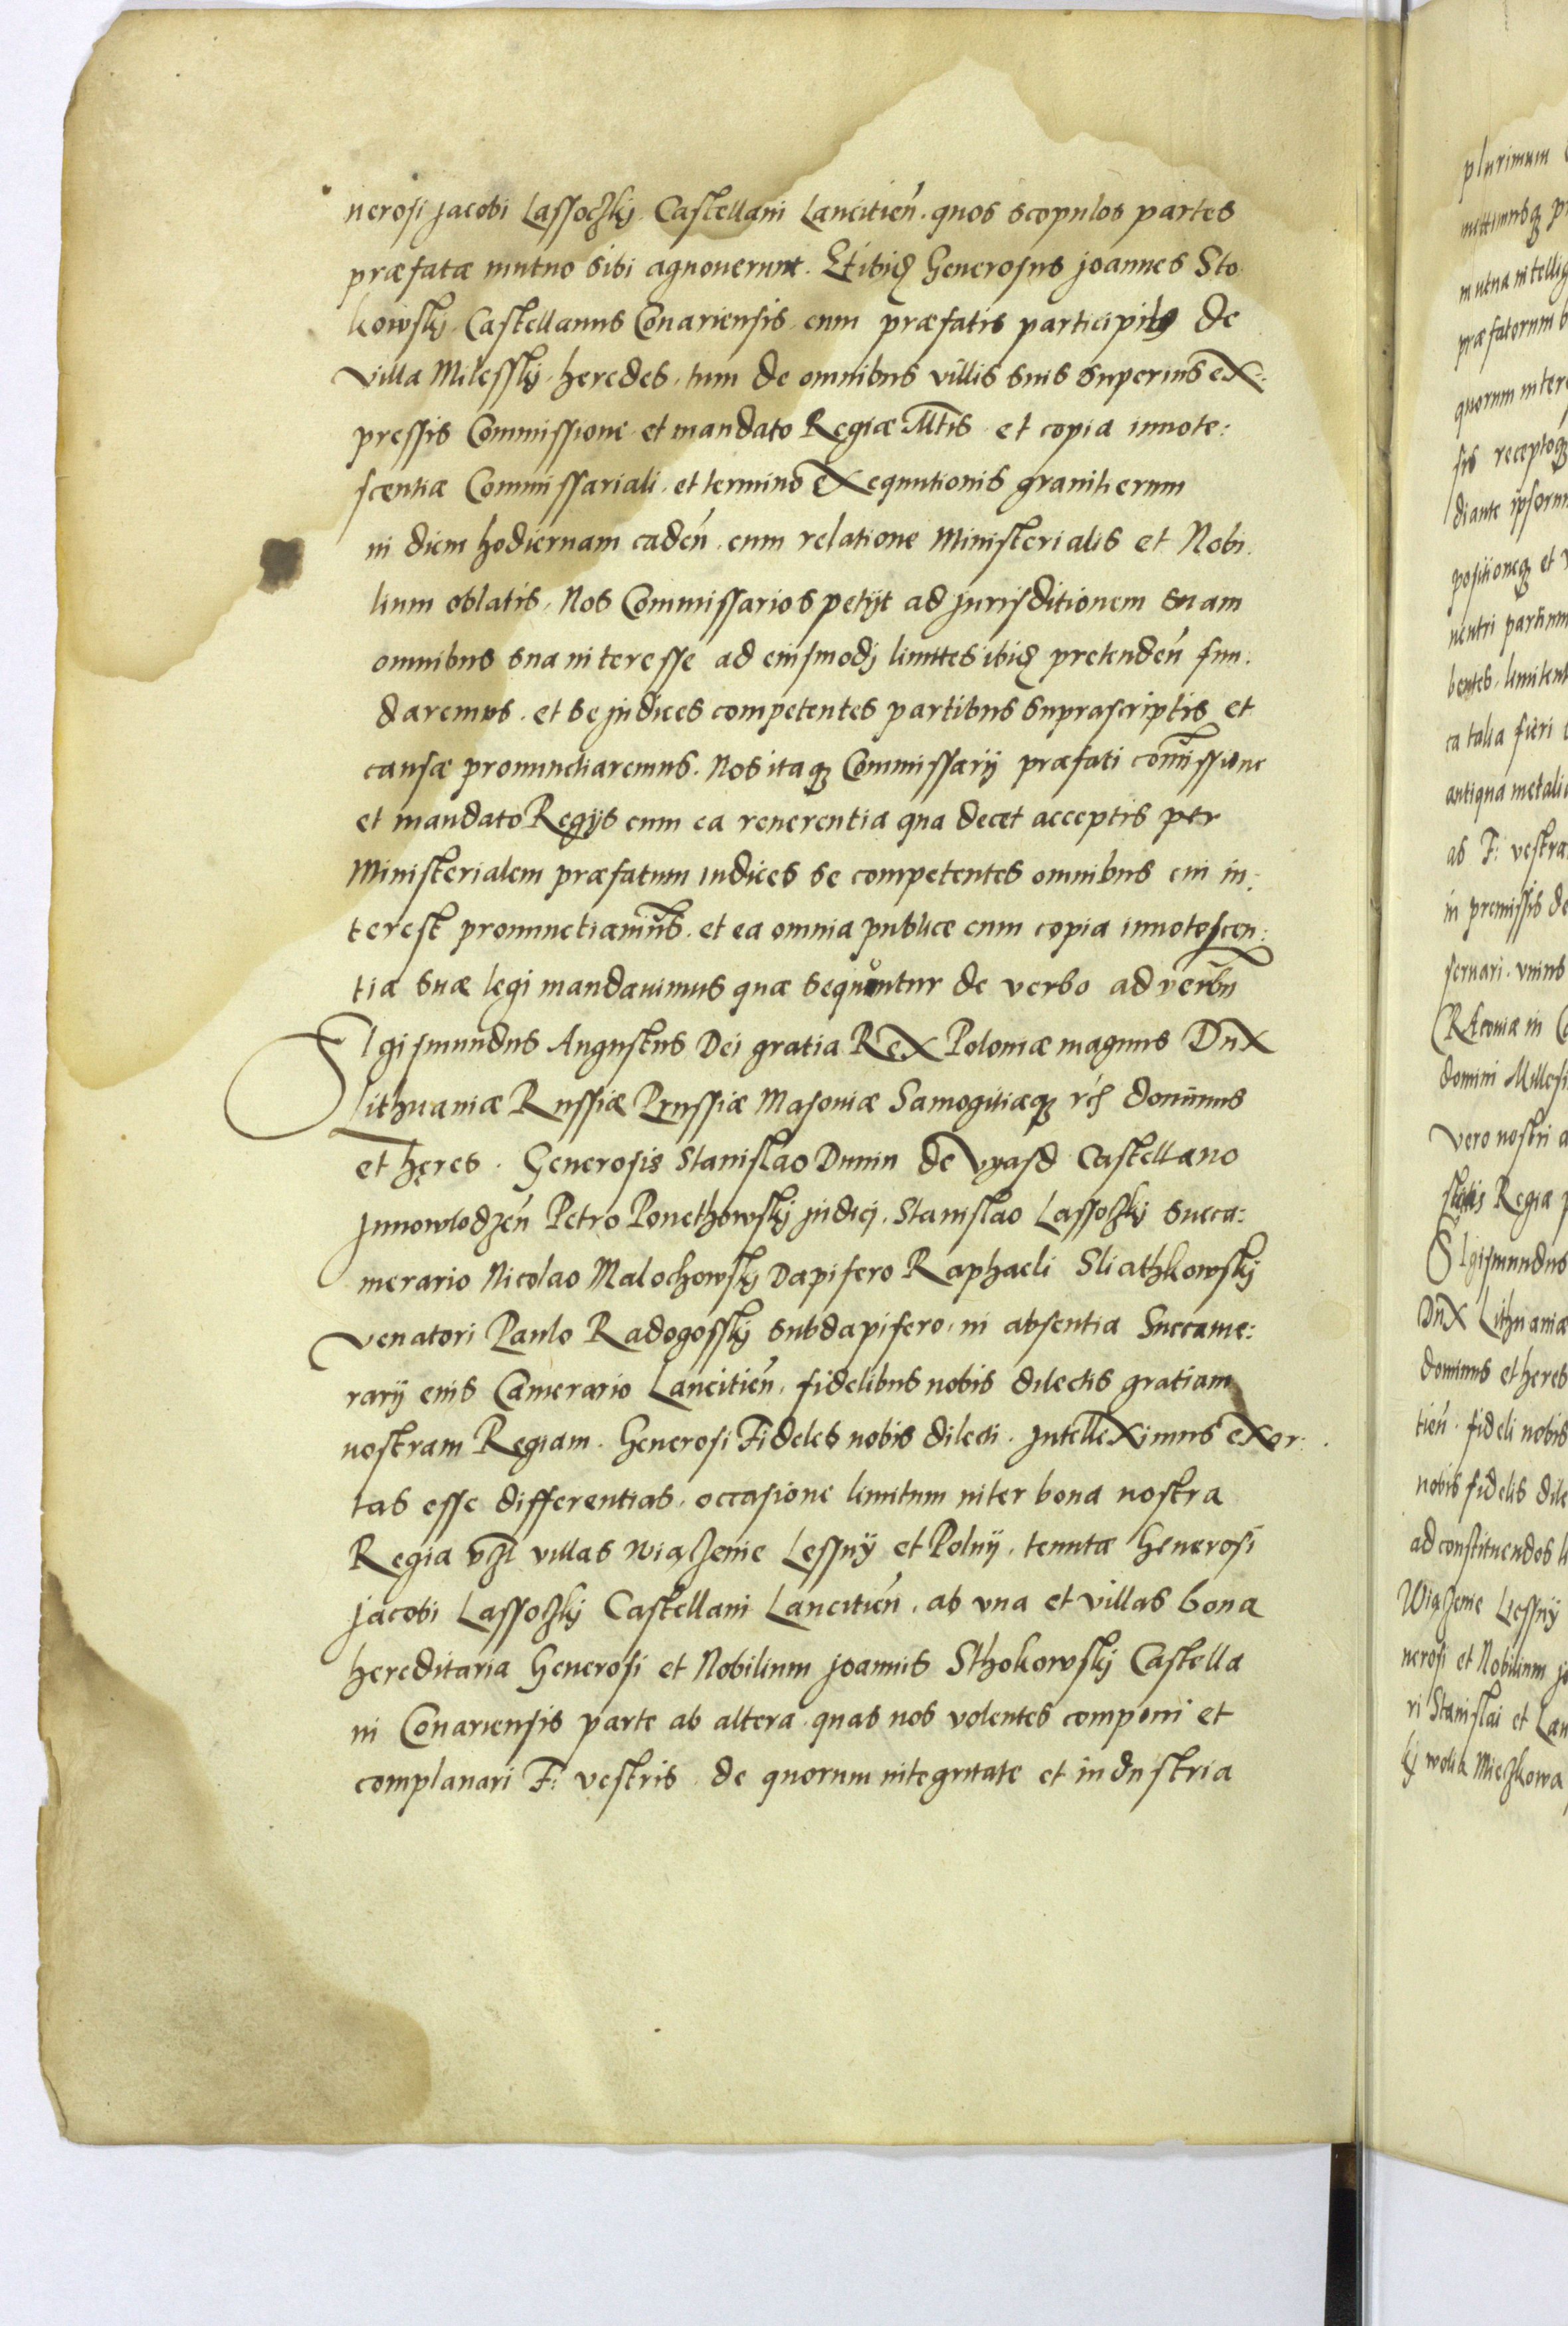 nerosi Jacobi Lassoczkj. Castellani Lancitien̄. quos scopulos partes
præfatæ mutuo sibi agnouerunt. Et ibiđ Generosus Joannes Sto
kowskj. Castellanus Conariensis. cum præfatis participibꝫ de
villa Milesskj. heredes. tum de omnibus villis suis superius ex:
pressis Commissione et mandato Regiæ Mtis. et copia innote:
scentiæ Commissariali. et termino exequutionis granitierum
in diem hodiernam caden̄. cum relatione Ministerialis et Nobi.
lium oblatis. Nos Commissarios petijt ad Jurisditionem suam
omnibus sua interesse ad eiusmodj limites ibiđ pretenden̄ fun.
daremus. et se judices competentes partibus suprascriptis et
causæ pronunctiaremus. Nos itaqꝫ Commissarij præfati com̄issione
et mandato Regijs cum ea reuerentia qua decet acceptis per
Ministerialem præfatum iudices se competentes omnibus cui in:
terest pronunctiauim̄us. et ea omnia publice cum copia innotescen:
tiæ suæ legi mandauimus quæ sequntur de verbo ad verbū
Sigismundus Augustus Dei gratia Rex Poloniæ magnus Dux
Lithuaniæ Russiæ Prussiæ Masouiæ Samogitiæqꝫ etc̄ dominus
et hęres. Generosis Stanislao Dunin de Vyasd Castellano
Jnnowlodzen̄ Petro Ponethowskj judicj. Stanislao Lassoczkj succa:
merario Nicolao Malochowskj Dapifero Raphaeli Sliathkowskj
Venatori Paulo Radogosskj subdapifero, in absentia Succame:
rarij eius Camerario Lancitien̄, fidelibus nobis dilectis gratiam
nostram Regiam. Generosi Fideles nobis dilecti. Jntelleximus exor:
tas esse differentias, occasione limitum inter bona nostra
Regia vꝫl villas Wiączenie Lessny et Polny, tenutæ Generosi
Jacobi Lassoczkj Castellani Lancitien̄, ab vna et villas bona
hereditaria Generosi et Nobilium Joannis Sthokowskj Castella
ni Conariensis parte ab altera quas nos volentes componi et
complanari F: vestris. de quorum integritate et industria
plurimum
mittimusqꝫ
mutua intellig
præfatorum
quorum inter
sis receptoqꝫ
diante ipsorum
positioneqꝫ et
neutri partium
bentes, limitent
ca talia fieri
antiqua metali
ab F: vestra
in premissis de
seruari. vnius
domini Milles
vero nostri a
Regia p
Sigismundus
Dux Lithuaniæ
dominus et heres
tien̄. fideli nobis
nobis fidelis dile
ad constituendos li
Wiączenie Lessny
nerosi et Nobilium jo
ri Stanislai et Lau
kj wolia Mieczkowa